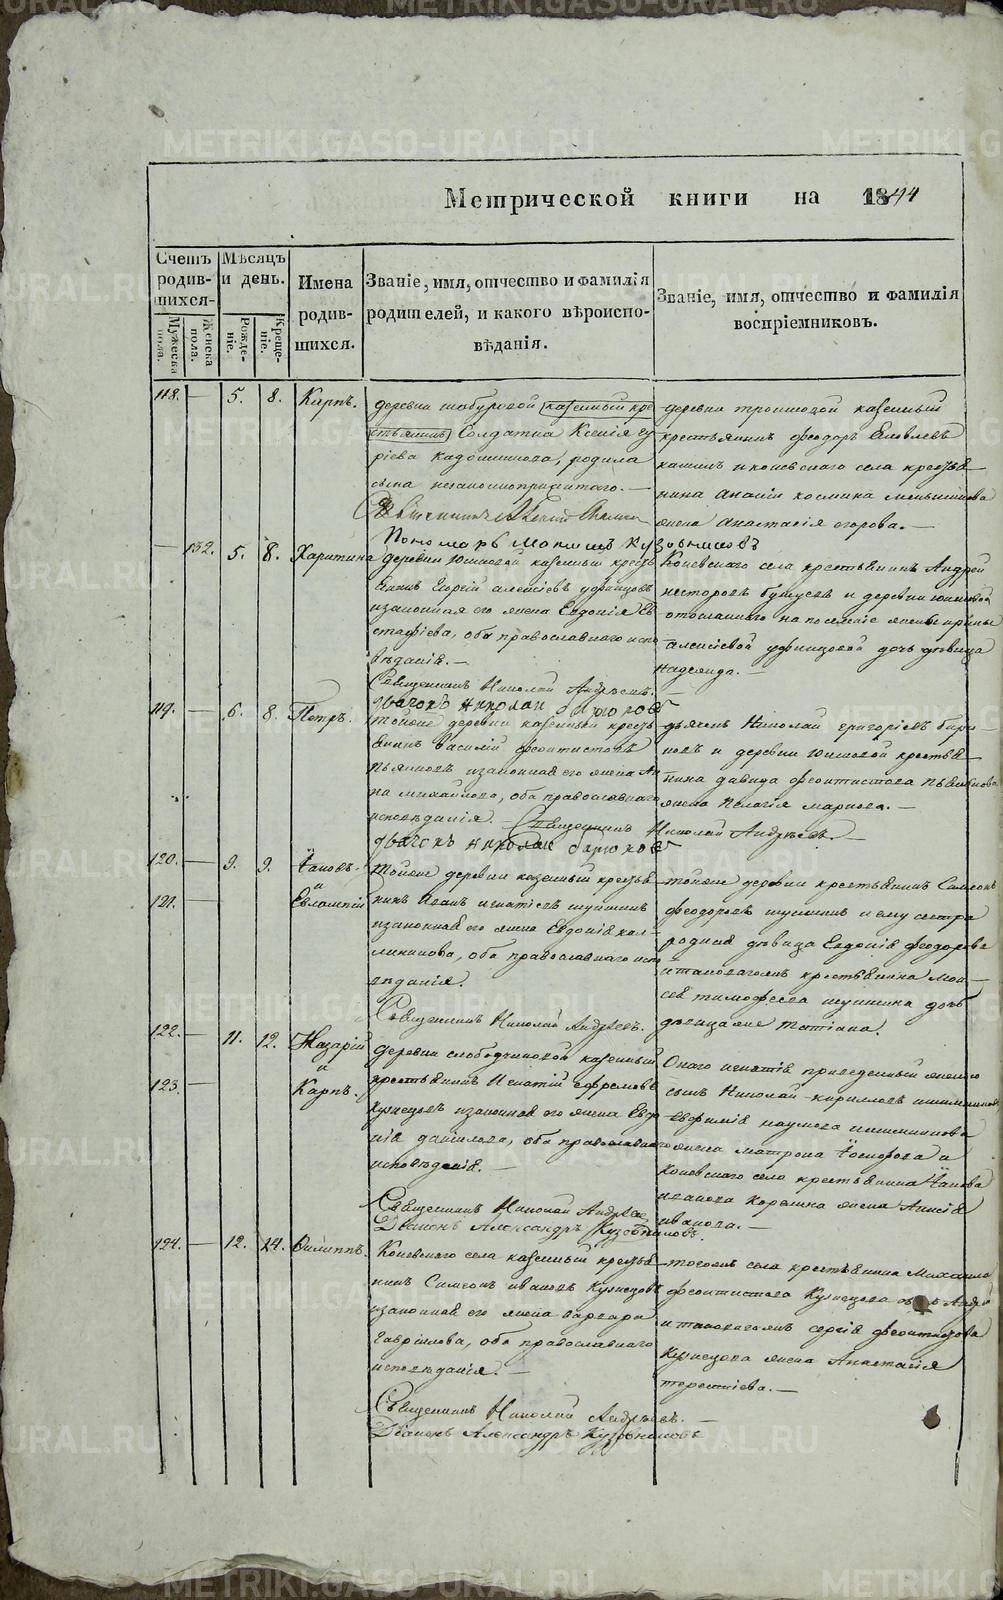 Метрической книги на 1844
Счетъ родив-шихся.
Мѣсяцъ и день.
Имена родив-шихся.
Званіе, имя, отчество и фамилія родителей, и какого вѣроиспо-вѣданія.
Званіе, имя, отчество и фамилія воспріемниковъ.
Мужеска пола.
Женска пола.
Рожде-ніе.
Креще-ніе.
118. — 5. 8. Карпъ.
деревни шабуровой казенный кре
стьянинъ Солдатка Ксенія
кадошникова, родила
сына незаконноприжитаго. —
Священникъ
Пономарь
деревни казенный
крестьянинъ феодоръ Яковлевъ
и коневскаго села крестья
нина космина меньшикова
жена Анастасія егорова. —
— 132. 5. 8. Харитина
деревни Юшковой казенный кресть
янинъ Георгій алексіевъ уфинцовъ
изаконная его жена Евдокія Ев
стафіева, оба православнаго испо
вѣданія. —
Священникъ Николай Андрѣевъ. —
дьячокъ николаи бирюковъ
Коневскаго села крестьянинъ Андрей
несторовъ и деревни юшковой
отосланнаго на поселеніе
алексіевой уфинцовой дочь дѣвица
надежда. —
119. — 6. 8. Петръ.
тойже деревни казенный кресть
янинъ Василій феоктистовъ
Пьянковъ изаконная его жена Ан
на михайлова, оба православнаго
исповѣданія. — Священникъ Николай Андрѣевъ. —
дьячокъ николаи бирюковъ
дьячекъ Николай григоріевъ бирю-
ковъ и деревни юшковой крестья
нина давида феоктистова Пьянкова
жена Пелагія маркова. —
120. — 9. 9. Іаковъ.
и
121. Евлампій
тойже деревни казенный крестья
нинъ Иванъ игнатіевъ
изаконная его жена Евдокія кал-
линикова, оба православнаго испо
вѣданія.
Священникъ Николай Андрѣевъ.
тойже деревни крестьянинъ Симеонъ
феодоровъ и ему сестра
родная дѣвица Евдокія феодорова
итаковагожъ крестьянина Мои-
сея тимофеева дочь
дѣвица же Татіана.
122. — 11. 12. Назарій
и
123. — Карпъ.
деревни слободчиковой казенный
крестьянинъ Игнатій ефремовъ
Кузнецовъ изаконная его жена Евдо
кія данілова, оба православнаго
исповѣданія. —
Священникъ Николай Андрѣевъ
Діаконъ Александръ Кузовниковъ.
Онаго игнатія приведенный
сынъ Николай кирилловъ
наумова
жена матрона и
коневскаго села крестьянина Іакова
иванова жена Анисія
иванова. —
124. — 12. 14. Филиппъ.
Коневскаго села казенный крестья
нинъ Симеонъ ивановъ Кузнецовъ
изаконная его жена варвара
Гавріилова, оба православнаго
исповѣданія. —
Священникъ Николай Андрѣевъ. —
Діаконъ Александръ Кузовниковъ
тогожъ села крестьянина Михаила
феоктистова Кузнецова
итаковагожъ сергія феоктистова
Кузнецова жена Анастасія
терентіева. —
METRIKI.GASO-URAL.RU